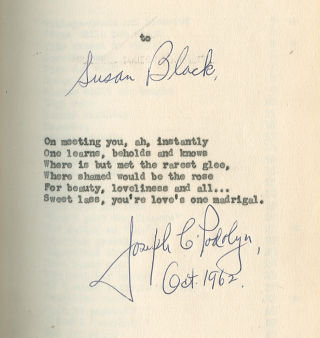 to
Susan Black,
On meeting you, ah, instantly
One learns, beholds and knows
Where is but met the rarest glee,
Where shamed would be the rose
For beauty, loveliness and all...
Sweet lass, you're love's one madrigal.
Joseph C. Podolyn,
Oct. 1962.